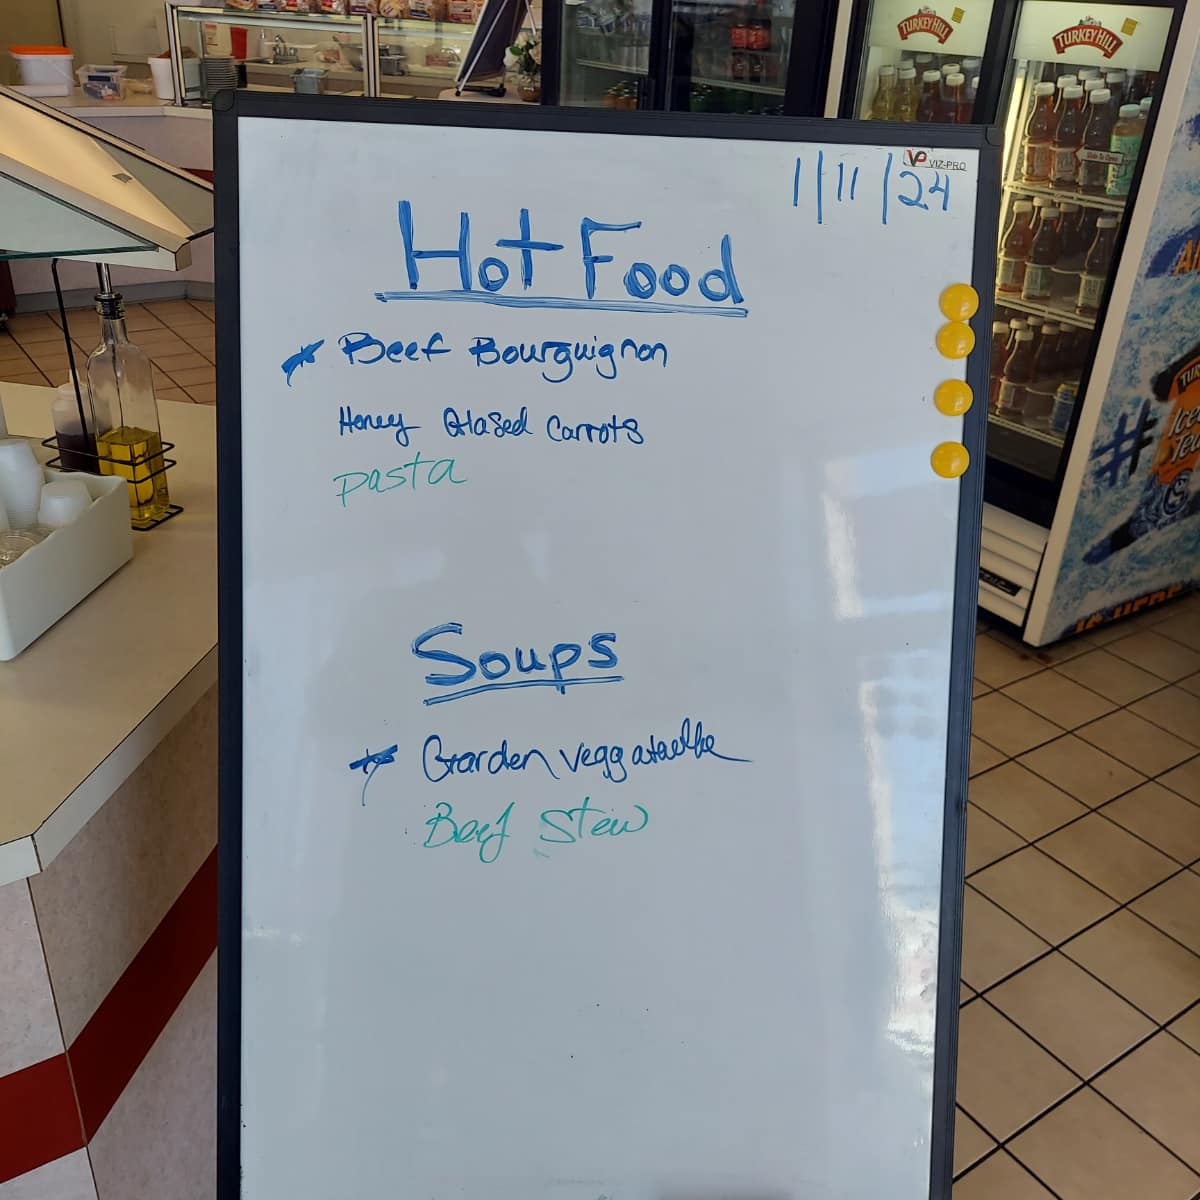 TURKEY HILL
TURKEY HILL
VIZ-PRO
1/11/24
Hot Food
Beef Bourguignon
Honey Glased Carrots
pasta
Soups
Garden
Beef Stew
#